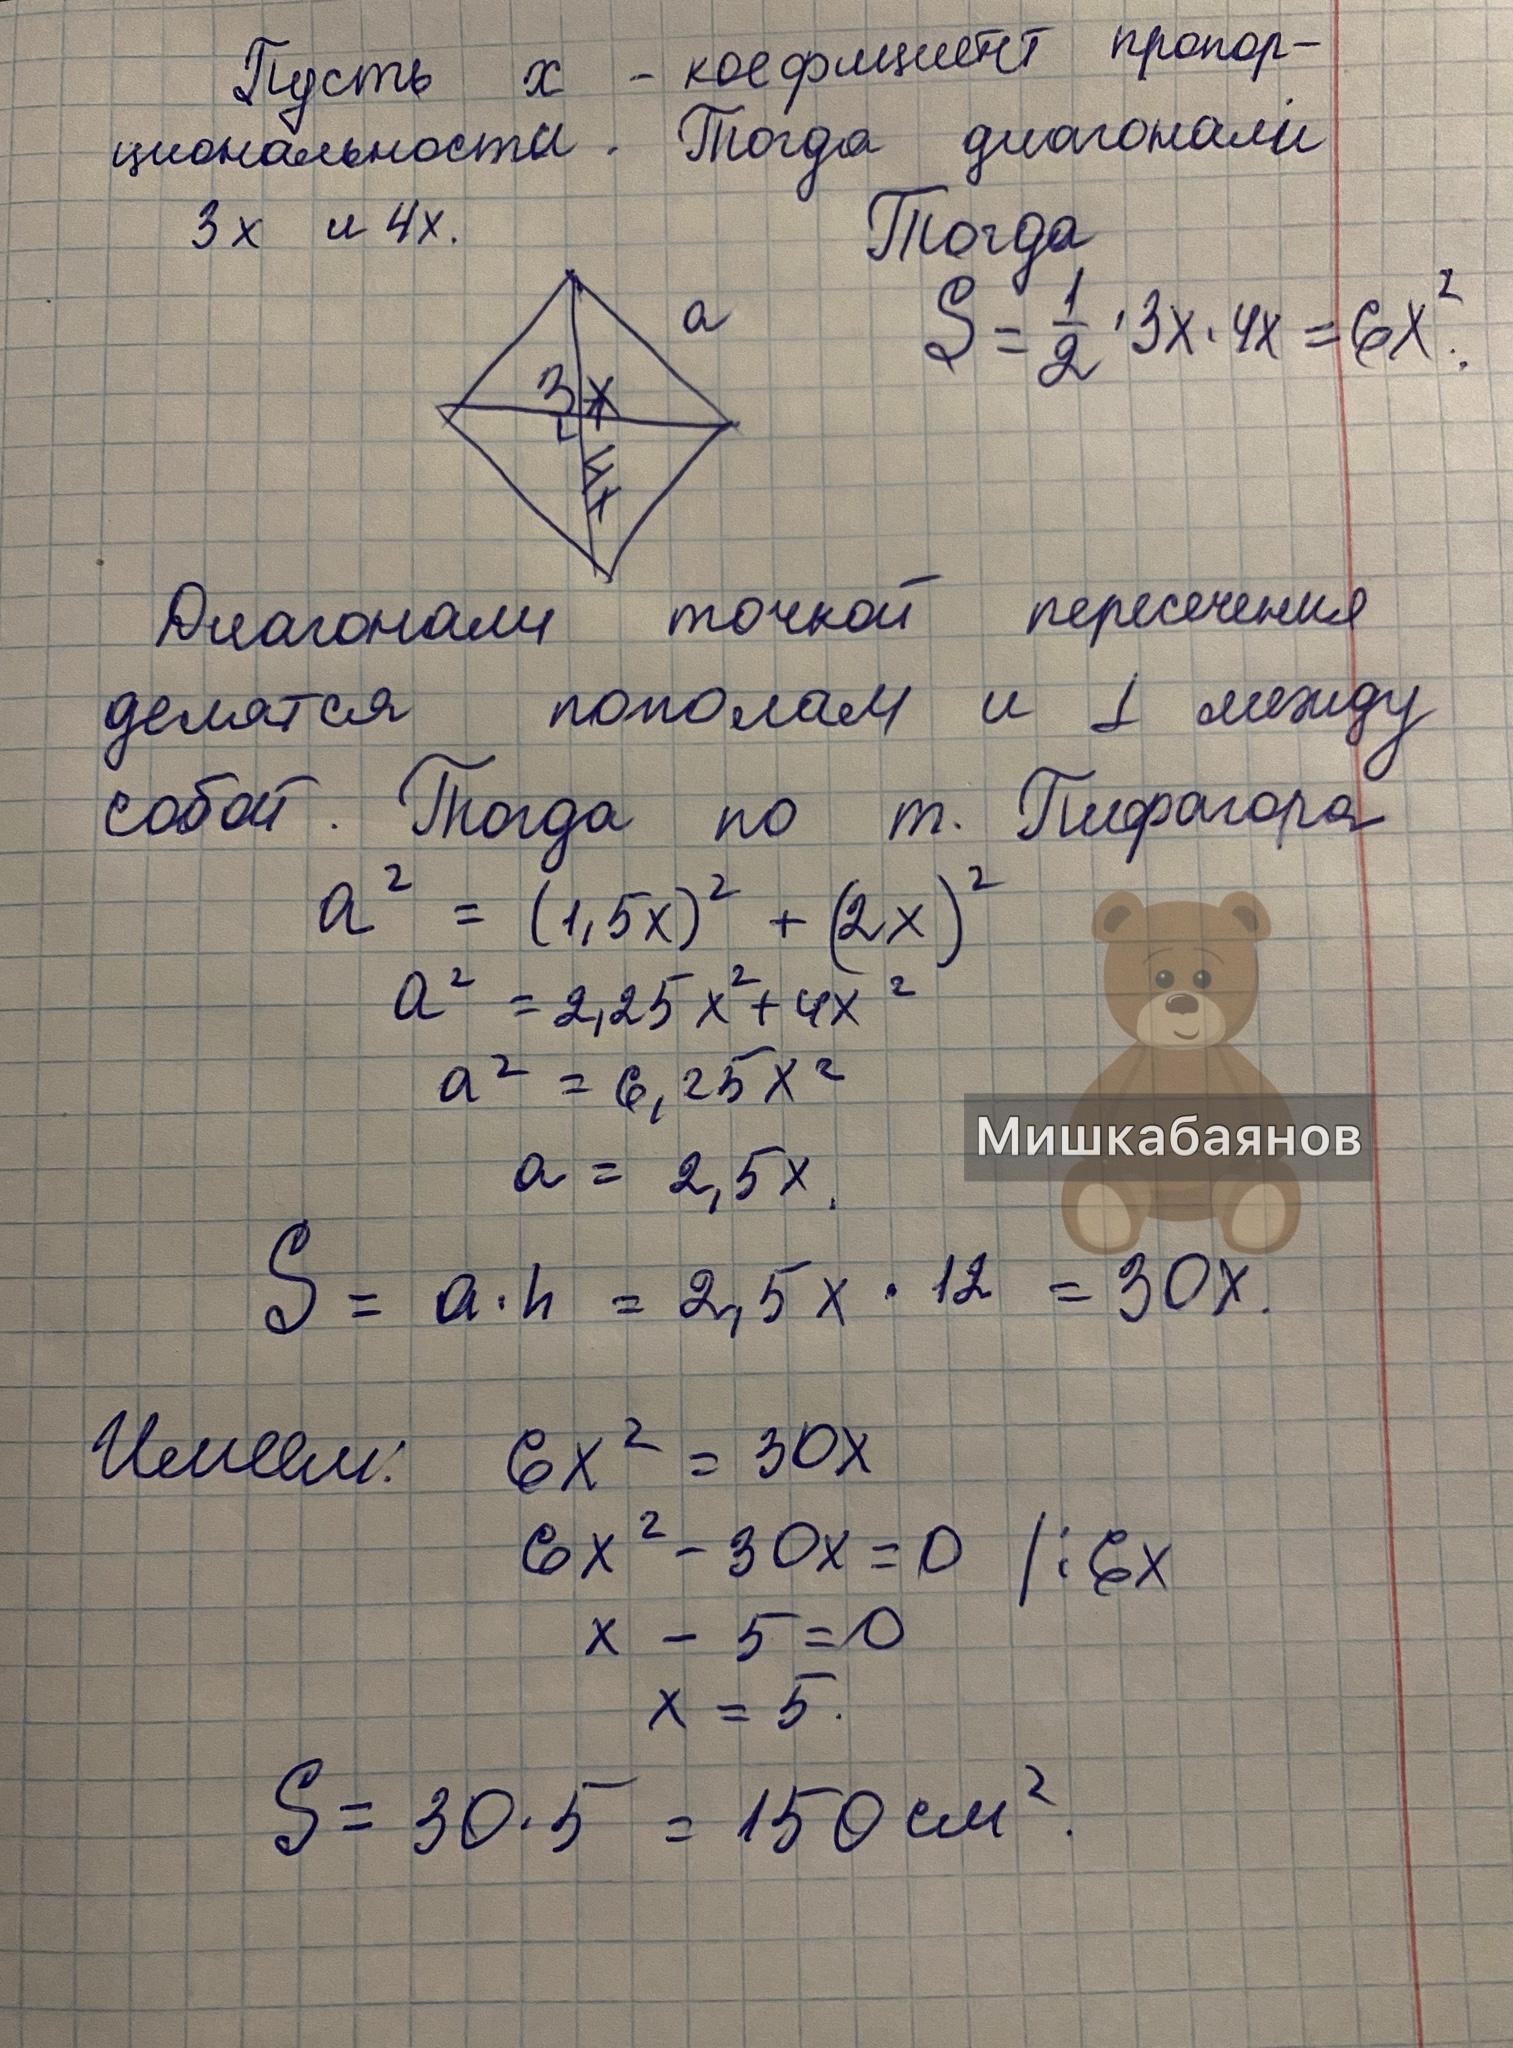 Пусть x - коефициент пропор-
циональности. Тогда диагонали
3x и 4x.
Тогда
S = 1/2 · 3x · 4x = 6x².
a
3x
4x
Диагонали точкой пересечения
делятся пополам и ⊥ между
собой. Тогда по т. Пифагора
a² = (1,5x)² + (2x)²
a² = 2,25x² + 4x²
a² = 6,25x²
Мишкабаянов
a = 2,5x.
S = a·h = 2,5x · 12 = 30x.
Имеем: 6x² = 30x
6x² - 30x = 0 /:6x
x - 5 = 0
x = 5.
S = 30·5 = 150 см².